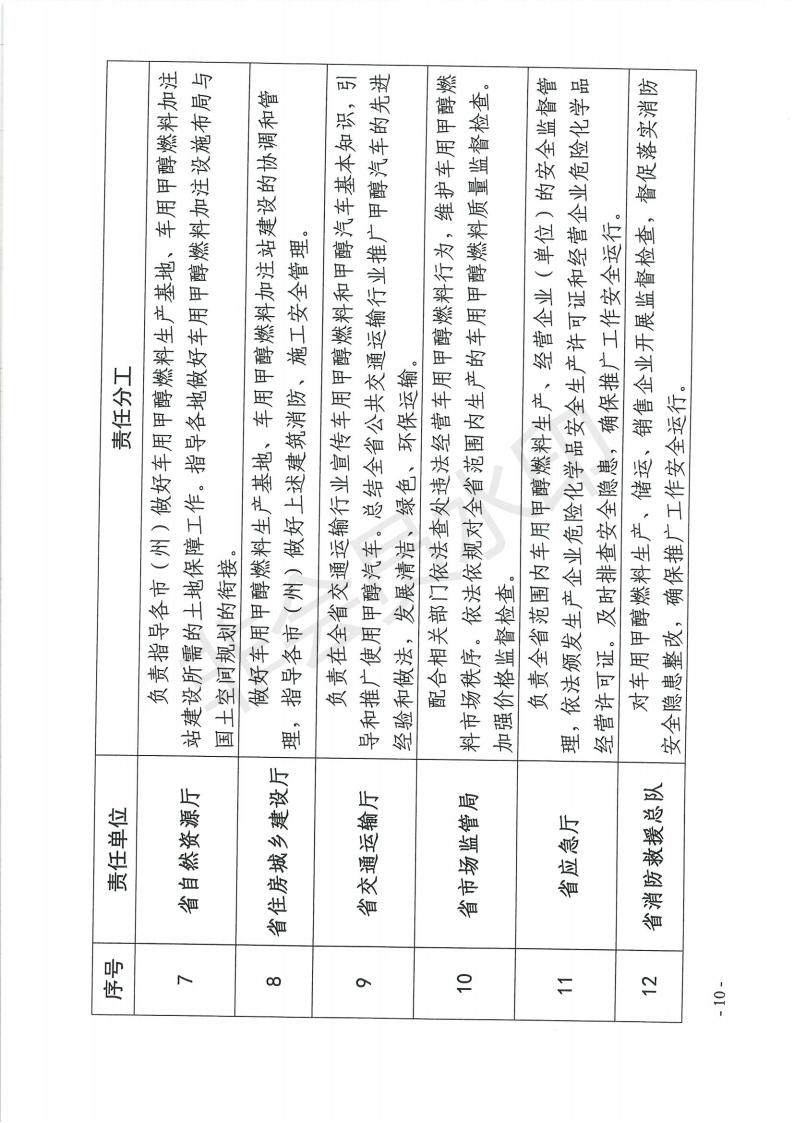 序号 责任单位 责任分工
7 省自然资源厅 负责指导各市（州）做好车用甲醇燃料生产基地、车用甲醇燃料加注
站建设所需的土地保障工作。指导各地做好车用甲醇燃料加注设施布局与
国土空间规划的衔接。
8 省住房城乡建设厅 做好车用甲醇燃料生产基地、车用甲醇燃料加注站建设的协调和管
理，指导各市（州）做好上述建筑消防、施工安全管理。
9 省交通运输厅 负责在全省交通运输行业宣传车用甲醇燃料和甲醇汽车基本知识，引
导和推广使用甲醇汽车。总结全省公共交通运输行业推广甲醇汽车的先进
经验和做法，发展清洁、绿色、环保运输。
10 省市场监管局 配合相关部门依法查处违法经营车用甲醇燃料行为，维护车用甲醇燃
料市场秩序。依法依规对全省范围内生产的车用甲醇燃料质量监督检查。
加强价格监督检查。
11 省应急厅 负责全省范围内车用甲醇燃料生产、经营企业（单位）的安全监督管
理，依法颁发生产企业危险化学品安全生产许可证和经营企业危险化学品
经营许可证。及时排查安全隐患，确保推广工作安全运行。
12 省消防救援总队 对车用甲醇燃料生产、储运、销售企业开展监督检查，督促落实消防
安全隐患整改，确保推广工作安全运行。
- 10 -
非会员水印